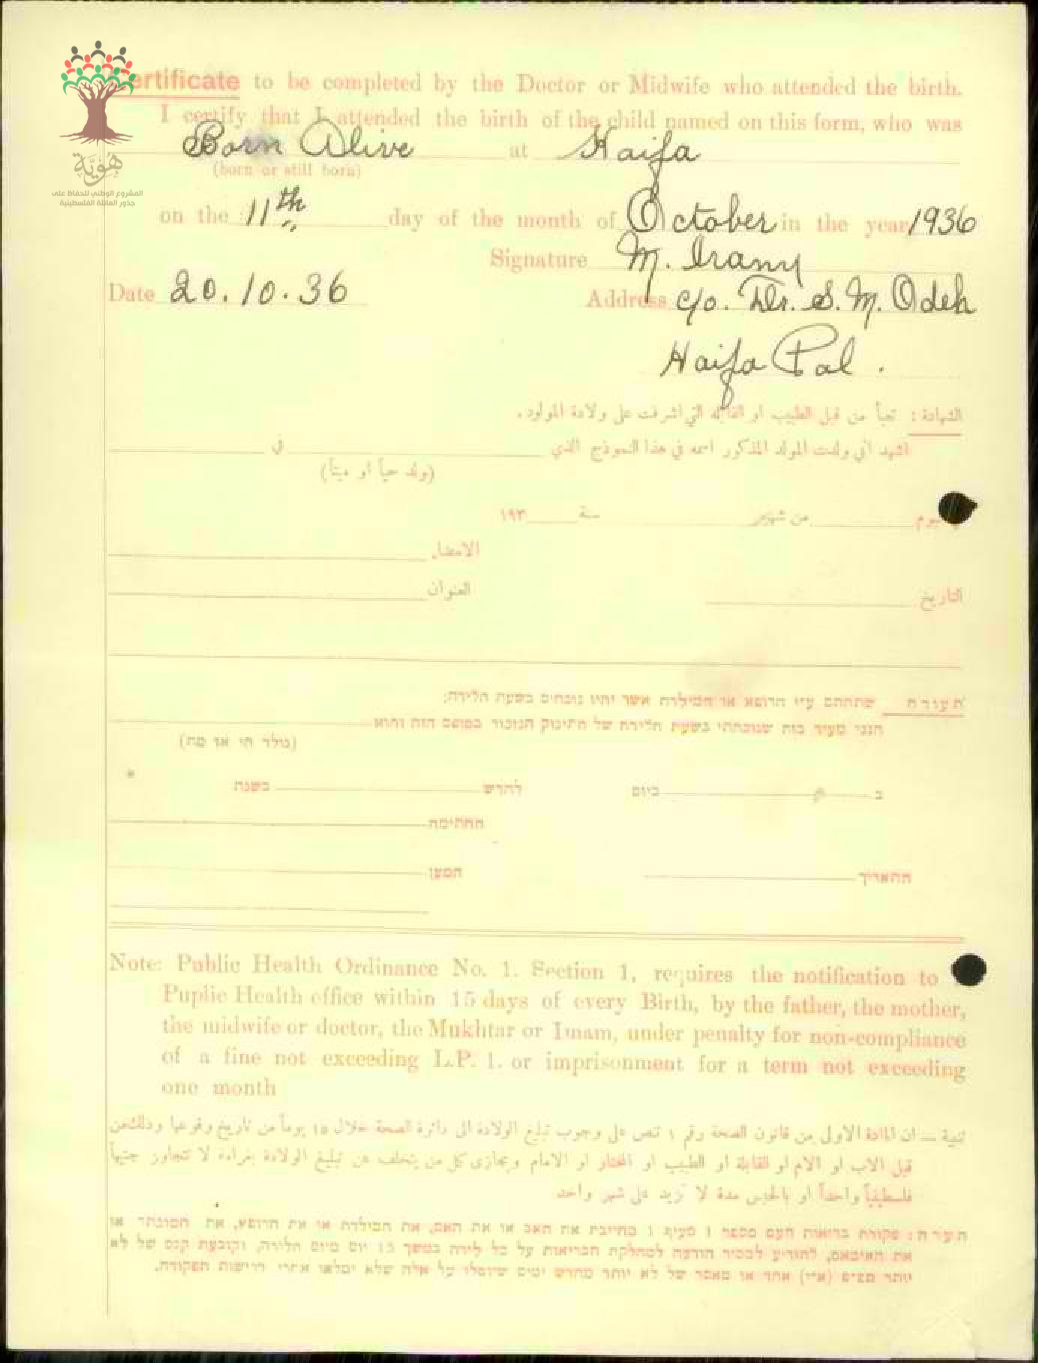 هُوِيَّة
المشروع الوطني للحفاظ على
جذور العائلة الفلسطينية
ertificate to be completed by the Doctor or Midwife who attended the birth.
I certify that I attended the birth of the child named on this form, who was
Born Alive at Haifa
(born or still born)
on the 11th day of the month of October in the year 1936
Signature M. Irany
Date 20.10.36 Address c/o. Dr. S. M. Odeh
Haifa Pal.
الشهادة : تعبأ من قبل الطبيب او القابلة التي اشرفت على ولادة المولود.
اشهد اني ولدت المولد المذكور اسمه في هذا النموذج الذي في
(ولد حياً او ميتاً)
يوم من شهر سنة ١٩٣
الامضاء
التاريخ العنوان
תעודה שתחתם ע״י הרופא או המילדת אשר יהיו נוכחים בשעת הלידה:
הנני מעיד בזה שנוכחתי בשעת הלידה של התינוק הנזכר בטופס הזה והוא
(נולד חי או מת)
ב ביום לחדש בשנת
החתימה
התאריך המען
Note: Public Health Ordinance No. 1. Section 1, requires the notification to
Puplic Health office within 15 days of every Birth, by the father, the mother,
the midwife or doctor, the Mukhtar or Imam, under penalty for non-compliance
of a fine not exceeding L.P. 1. or imprisonment for a term not exceeding
one month
تنبيه — ان المادة الاولى من قانون الصحة رقم ١ تنص على وجوب تبليغ الولادة الى دائرة الصحة خلال ١٥ يوماً من تاريخ وقوعها وذلك من
قبل الاب او الام او القابلة او الطبيب او المختار او الامام ويجازى كل من يتخلف عن تبليغ الولادة بغرامة لا تتجاوز جنيهاً
فلسطينياً واحداً او بالحبس مدة لا تزيد على شهر واحد
הערה: פקודת בריאות העם מספר 1 סעיף 1 מחייבת את האב או את האם, את המילדת או את הרופא, את המוכתר או
את האימאם, להודיע למסיר הודעה למחלקת הבריאות על כל לידה במשך 15 יום מיום הלידה, וקובעת קנס של לא
יותר מפונט (א״י) אחד או מאסר של לא יותר מחדש ימים שיוטלו על אלה שלא ימלאו אחרי דרישות הפקודה.